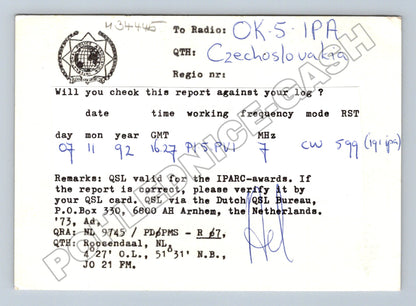 434445
To Radio: OK-5-IPA
QTH: Czechoslovakia
Regio nr:
Will you check this report against your log ?
date time working frequency mode RST
day mon year GMT MHz
07 11 92 1627 PI5PVI 7 CW 599 (191 ipa)
Remarks: QSL valid for the IPARC-awards. If
the report is correct, please verify it by
your QSL card. QSL via the Dutch QSL Bureau,
P.O.Box 330, 6800 AH Arnhem, the Netherlands.
'73, Ad.
QRA: NL 9745 / PDØPMS - R 67,
QTH: Roosendaal, NL
4°27' O.L., 51°31' N.B.,
JO 21 FM.
POHLEDNICE-GASH